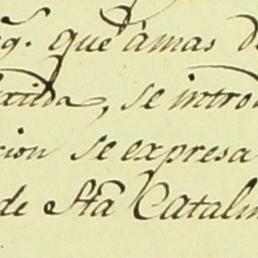 que àmas d
, se introd
cion se expresa
de Sta Catalin